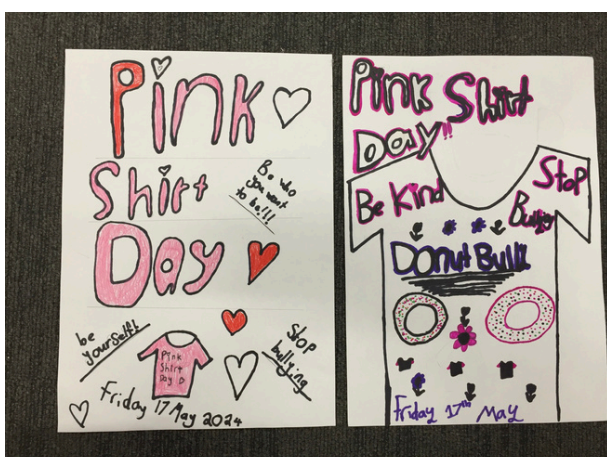 Pink
Shirt
Be who
you want
to be!!!
Day
be
yourself!
Pink
Shirt
Day
Stop
bullying
Friday 17 May 2024
Pink Shirt
Day!!
Be Kind
Stop
Bully
Donut Bull!
Friday 17th May